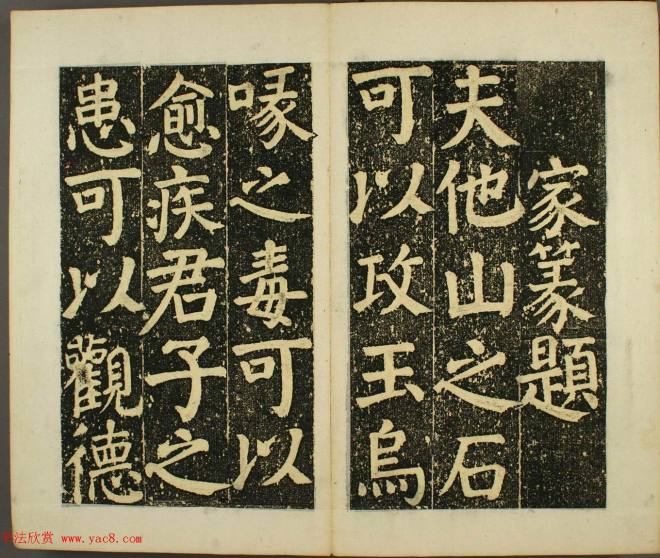 家篆題
夫他山之石
可以攻玉烏
喙之毒可以
愈疾君子之
患可以觀德
书法欣赏 www.yac8.com